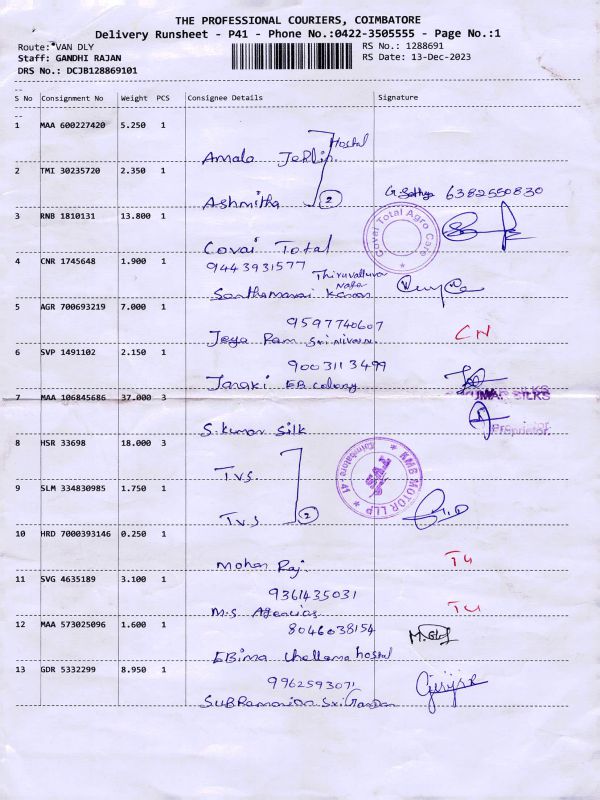 THE PROFESSIONAL COURIERS, COIMBATORE
Delivery Runsheet - P41 - Phone No.:0422-3505555 - Page No.:1
Route: VAN DLY
Staff: GANDHI RAJAN
DRS No.: DCJB128869101
RS No.: 1288691
RS Date: 13-Dec-2023
S No Consignment No Weight PCS Consignee Details Signature
1 MAA 600227420 5.250 1
Hostal
Amala
2 TMI 30235720 2.350 1
Ashmitha 2 G. Sathya 6382550830
3 RNB 1810131 13.800 1
Covai Total Agro Care
Covai Total
4 CNR 1745648 1.900 1
9443931577
Thiruvalluva
Nagar
5 AGR 700693219 7.000 1
9597740607
Jeya Ram Srinivasan CN
6 SVP 1491102 2.150 1
9003113499
Janaki EB colony
7 MAA 106845686 37.000 3
KUMAR SILKS
Proprietor
S. kumar Silk
8 HSR 33698 18.000 3
Tvs
KMB MOTOR LLP
9 SLM 334830985 1.750 1
Tvs 2
10 HRD 7000393146 0.250 1
Mohan Raj
11 SVG 4635189 3.100 1
9361435031
M.S Agencies
12 MAA 573025096 1.600 1
8046038154
Chellama hostal
13 GDR 5332299 8.950 1
9962593071